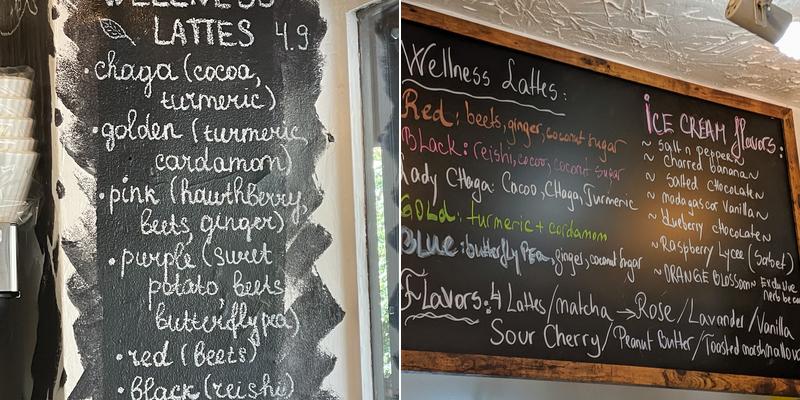 WELLNESS
LATTES 4.9
• chaga (cocoa,
turmeric)
• golden (turmeric,
cardamom)
• pink (hawthberry,
beets, ginger)
• purple (sweet
potato, beets
butterfly pea)
• red (beets)
• black (reishi)
Wellness Lattes:
Red: beets, ginger, coconut sugar
Black: reishi, cocoa, coconut sugar
Lady CHaga: Cocoa, CHaga, Turmeric
GOLD: turmeric + cardamom
BLUE: butterfly PEA, ginger, coconut sugar
Flavors: 4 Lattes/matcha → Rose/Lavender/Vanilla
Sour Cherry/Peanut Butter/Toasted marshmallow
iCE CREAM flavors:
~ salt n pepper ~
~ charred banana ~
~ salted chocolate ~
~ madagascar Vanilla ~
~ blueberry chocolate ~
~ Raspberry Lycee (Sorbet)
~ ORANGE BLOSSOM ~